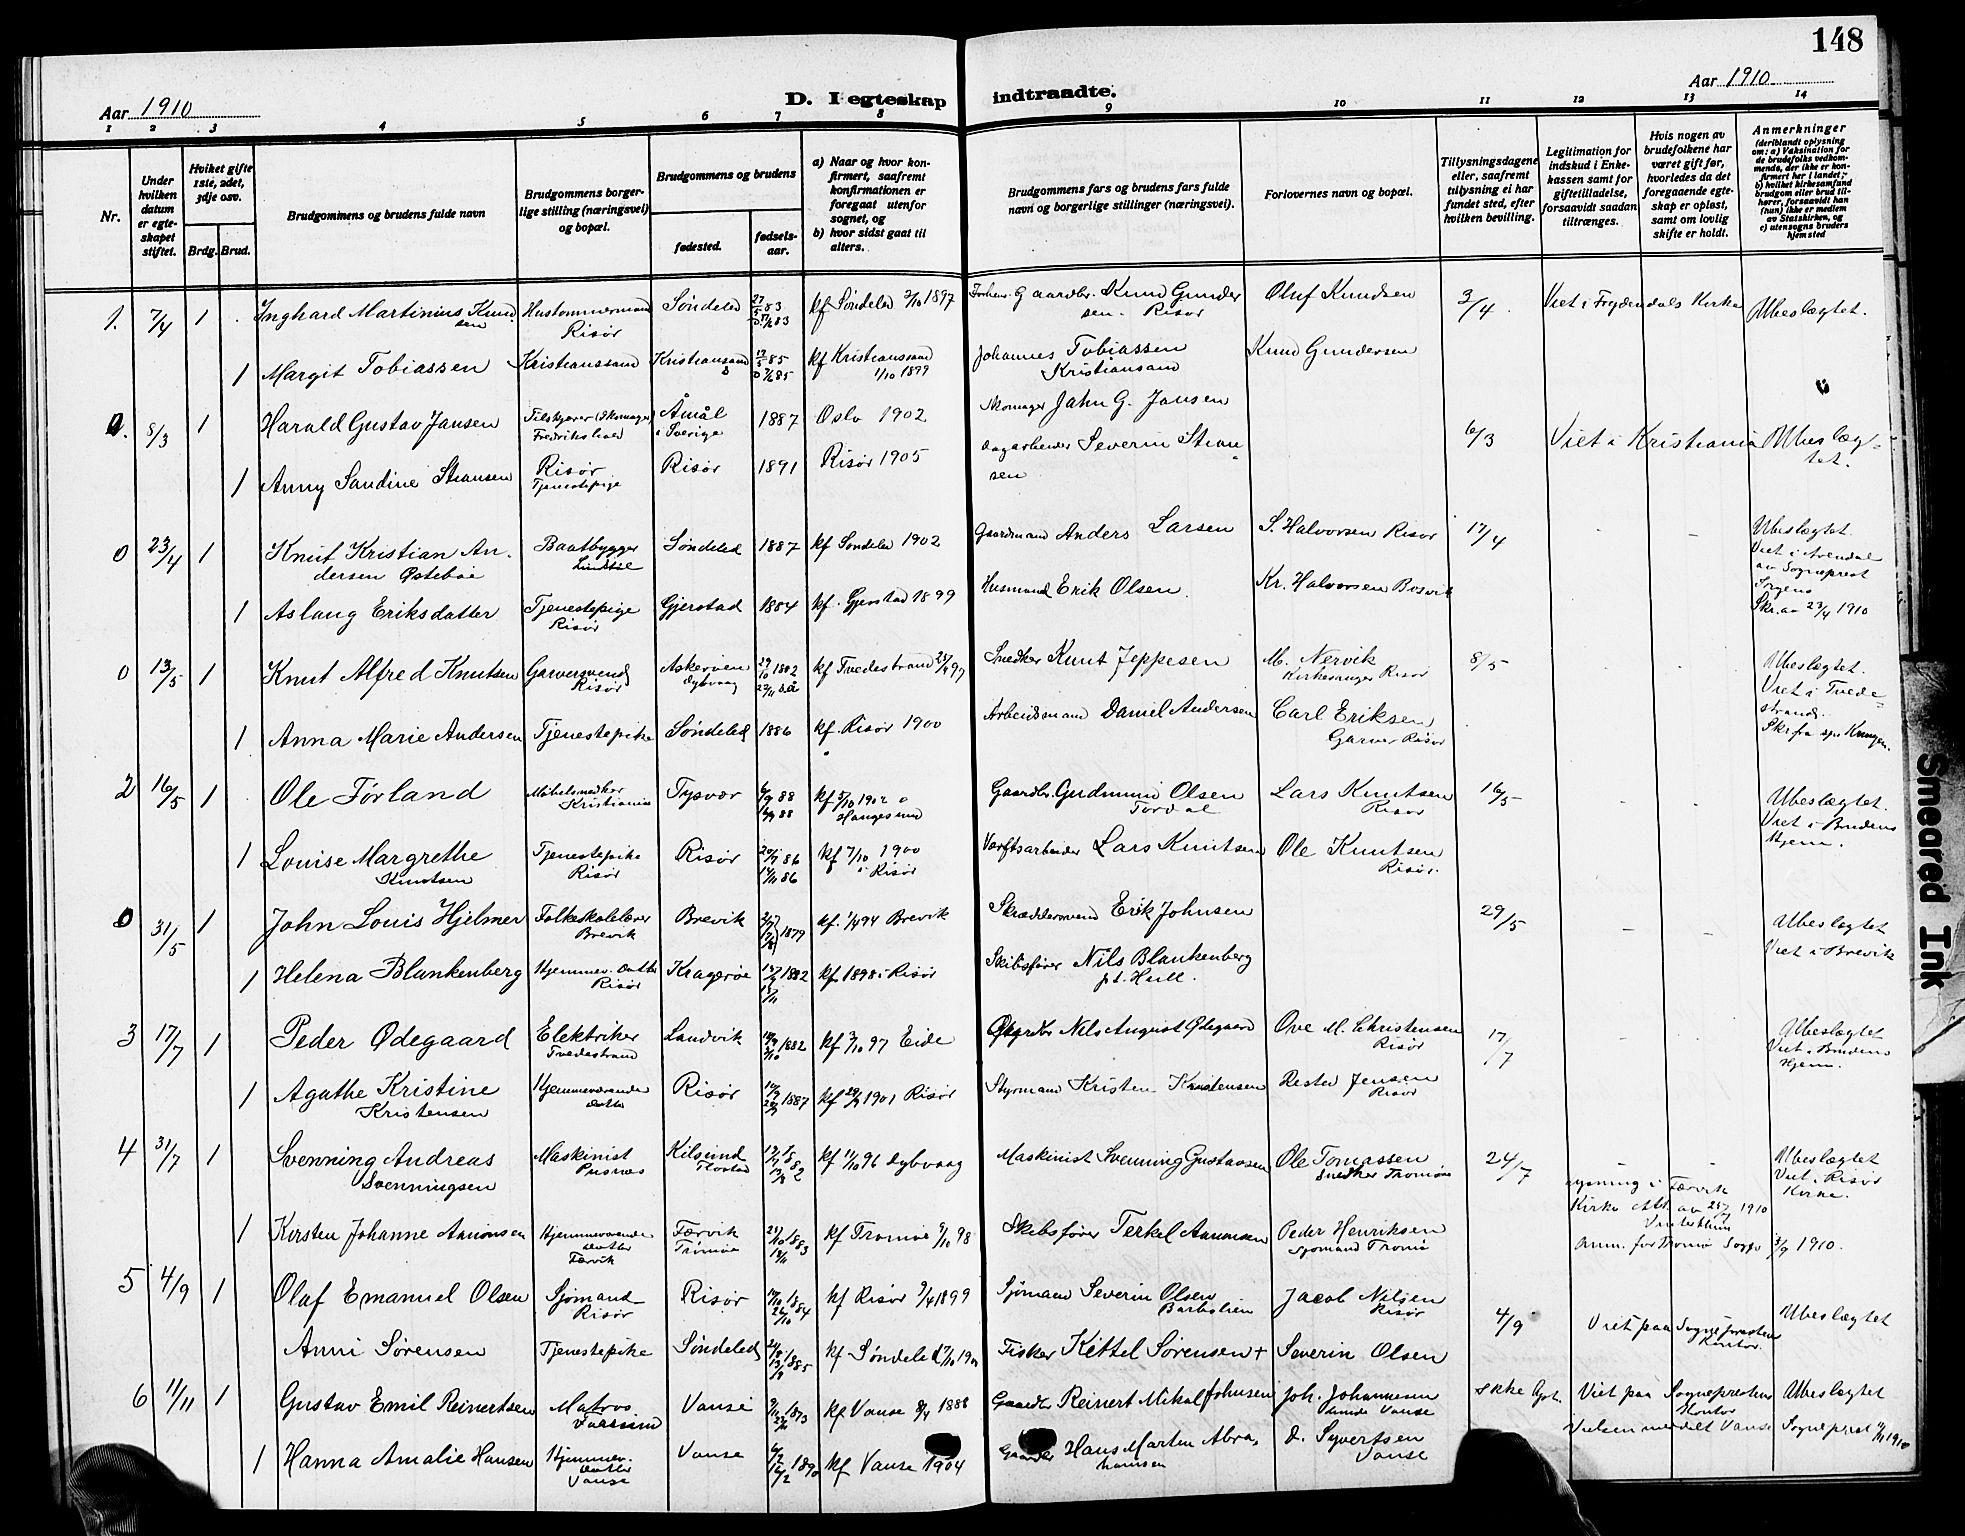 148
Aar 1910
D. I egteskap indtraadte.
Aar 1910
1 2 3 4 5 6 7 8 9 10 11 12 13 14
Nr.
Under hvilken datum er egteskapet stiftet.
Hvilket gifte 1ste, 2det, 3dje osv.
Brdg. Brud.
Brudgommens og brudens fulde navn
Brudgommens borgerlige stilling (næringsvei) og bopæl.
Brudgommens og brudens
fødested. fødselsaar.
a) Naar og hvor konfirmert, saafremt konfirmationen er foregaat utenfor sognet, og
b) hvor sidst gaat til alters.
Brudgommens fars og brudens fars fulde navn og borgerlige stillinger (næringsvei).
Forlovernes navn og bopæl.
Tillysningsdagene eller, saafremt tillysning ei har fundet sted, efter hvilken bevilling.
Legitimation for indskud i Enkekassen samt for giftetilladelse, forsaavidt saadan tiltrænges.
Hvis nogen av brudefolkene har været gift før, hvorledes da det foregaaende egteskap er opløst, samt om lovlig skifte er holdt.
Anmerkninger (deriblandt oplysning om: a) Vaksination for de brudefolks vedkommende, der ikke er konfirmert her i landet; b) hvilket kirkesamfund brudgom eller brud tilhører, forsaavidt han (hun) ikke er medlem av Statskirken, og c) utensogns bruders hjemsted
1. 7/4 1 Inghard Martinius Knudsen Hustømmermand Risør Søndeled 83 kf Søndeled 3/10 1897 Gaardbr. Knud Gundersen. Risør Oluf Knudsen 3/4 Viet i Frydendals Kirke Ubeslægtet.
1 Margit Tobiassen Kristianssand Kristianssand 85 kf Kristianssand 1/10 1899 Johannes Tobiassen Kristiansand Knud Gundersen
8/3 1 Harald Gustav Jansen Fredrikshald Åmål i Sverige 1887 Oslo 1902 Skomager John G. Jansen 6/3 Viet i Kristiania Ubeslægtet.
1 Anny Sandine Stiansen Risør Tjenestepige Risør 1891 Risør 1905 Dagarbeider Severin Stiansen
0 23/4 1 Knut Kristian Andersen Østebøe Baatbygger Lindstøl Søndeled 1887 kf Søndeled 1902 Gaardmand Anders Larsen S. Halvorsen Risør 17/4 - - Ubeslægtet. Viet i Arendal av Sogneprest Skr. av 23/4 1910
1 Aslaug Eriksdatter Tjenestepige Risør Gjerstad 1884 kf. Gjerstad 1899 Husmand Erik Olsen. Kr. Halvorsen Bosvik
0 13/5 1 Knut Alfred Knutsen Garversvend Risør Askerøen Dybvaag 1882 kf Tvedestrand Snedker Knut Jeppesen M. Nervik Kirkesanger Risør 8/5 - - Ubeslægtet. Viet i Tvedestrand.
1 Anna Marie Andersen Tjenestepike Søndeled 1886 kf. Risør 1900 Arbeidsmand Daniel Andersen Carl Eriksen Garver Risør
2 16/5 1 Ole Førland Møbelsnedker Kristiania Tysvær 88 kf 5/10 1902 Haugesund Gaardbr. Gudmund Olsen Lars Knutsen Risør 16/5 - - Ubeslægtet. Viet i Brudens Hjem.
1 Louise Margrethe Knutsen Tjenestepike Risør Risør 86 kf 7/10 1900 i Risør Værftsarbeider Lars Knutsen Ole Knutsen Risør.
0 31/5 1 John Louis Hjelmer Folkeskolelærer Brevik Brevik 1879 kf. 1/4 94 Brevik Skræddersvend Erik Johnsen 29/5 - - Ubeslægtet Viet i Brevik
1 Helena Blankenberg Hjemmev. datter Risør Kragerøe 1882 kf 1898 i Risør Skibsfører Nils Blankenberg
3 17/7 1 Peder Ødegaard Elektriker Tvedestrand Landvik 1882 kf 3/10 97 Eide Nils August Ødegaard Ove M. Christensen Risør 17/7 - - Ubeslægtet Viet i Brudens Hjem.
1 Agathe Kristine Kristensen Hjemmeværende datter Risør 1887 kf 29/9 1901 Risør Styrmand Kristen Kristensen Jensen Risør
4 31/7 1 Svenning Andreas Svenningsen Maskinist Pusnæs Kilsund Flosta 1882 kf 11/10 96 Dybvaag Maskinist Svenning Gustavsen Ole Tomassen Snedker Tromøe 24/7 - - Ubeslægtet Viet i Risør Kirke.
Lysning i Færvik Kirke Att. av 25/7 1910
1 Kirsten Johanne Aanonsen Hjemmeværende datter Færvik Færvik Tromøe 1883 kf Tromøe 9/10 98 Skibsfører Terkel Aanonsen Peder Henriksen Sjømand Tromø Anm. for Tromø Sogn 3/9 1910.
5 4/9 1 Olaf Emanuel Olsen Sjømand Risør Risør 1884 kf Risør 9/4 1899 Sjømand Severin Olsen Jacob Nilsen Risør 4/9 Viet paa Sogneprestens Kontor. Ubeslægtet
Anni Sørensen Tjenestepike Søndeled 1885 kf Søndeled Fisker Kittel Sørensen + Severin Olsen
6 11/11 1 Gustav Emil Reinertsen Matros Vanse 1873 kf Vanse 8/4 1888 Gaardbr Reinert Mikal Johnsen Joh. Johannesen Vanse Ikke Viet paa Sogneprestens Kontor Ubeslægtet
1 Hanna Amalie Hansen Hjemmev. datter Vanse Vanse 1890 kf Vanse 1904 Hans Martin Abrahamsen D. Syvertsen Vanse Vielsen meddelt Vanse Sogneprest 11/11 1910
Smeared Ink